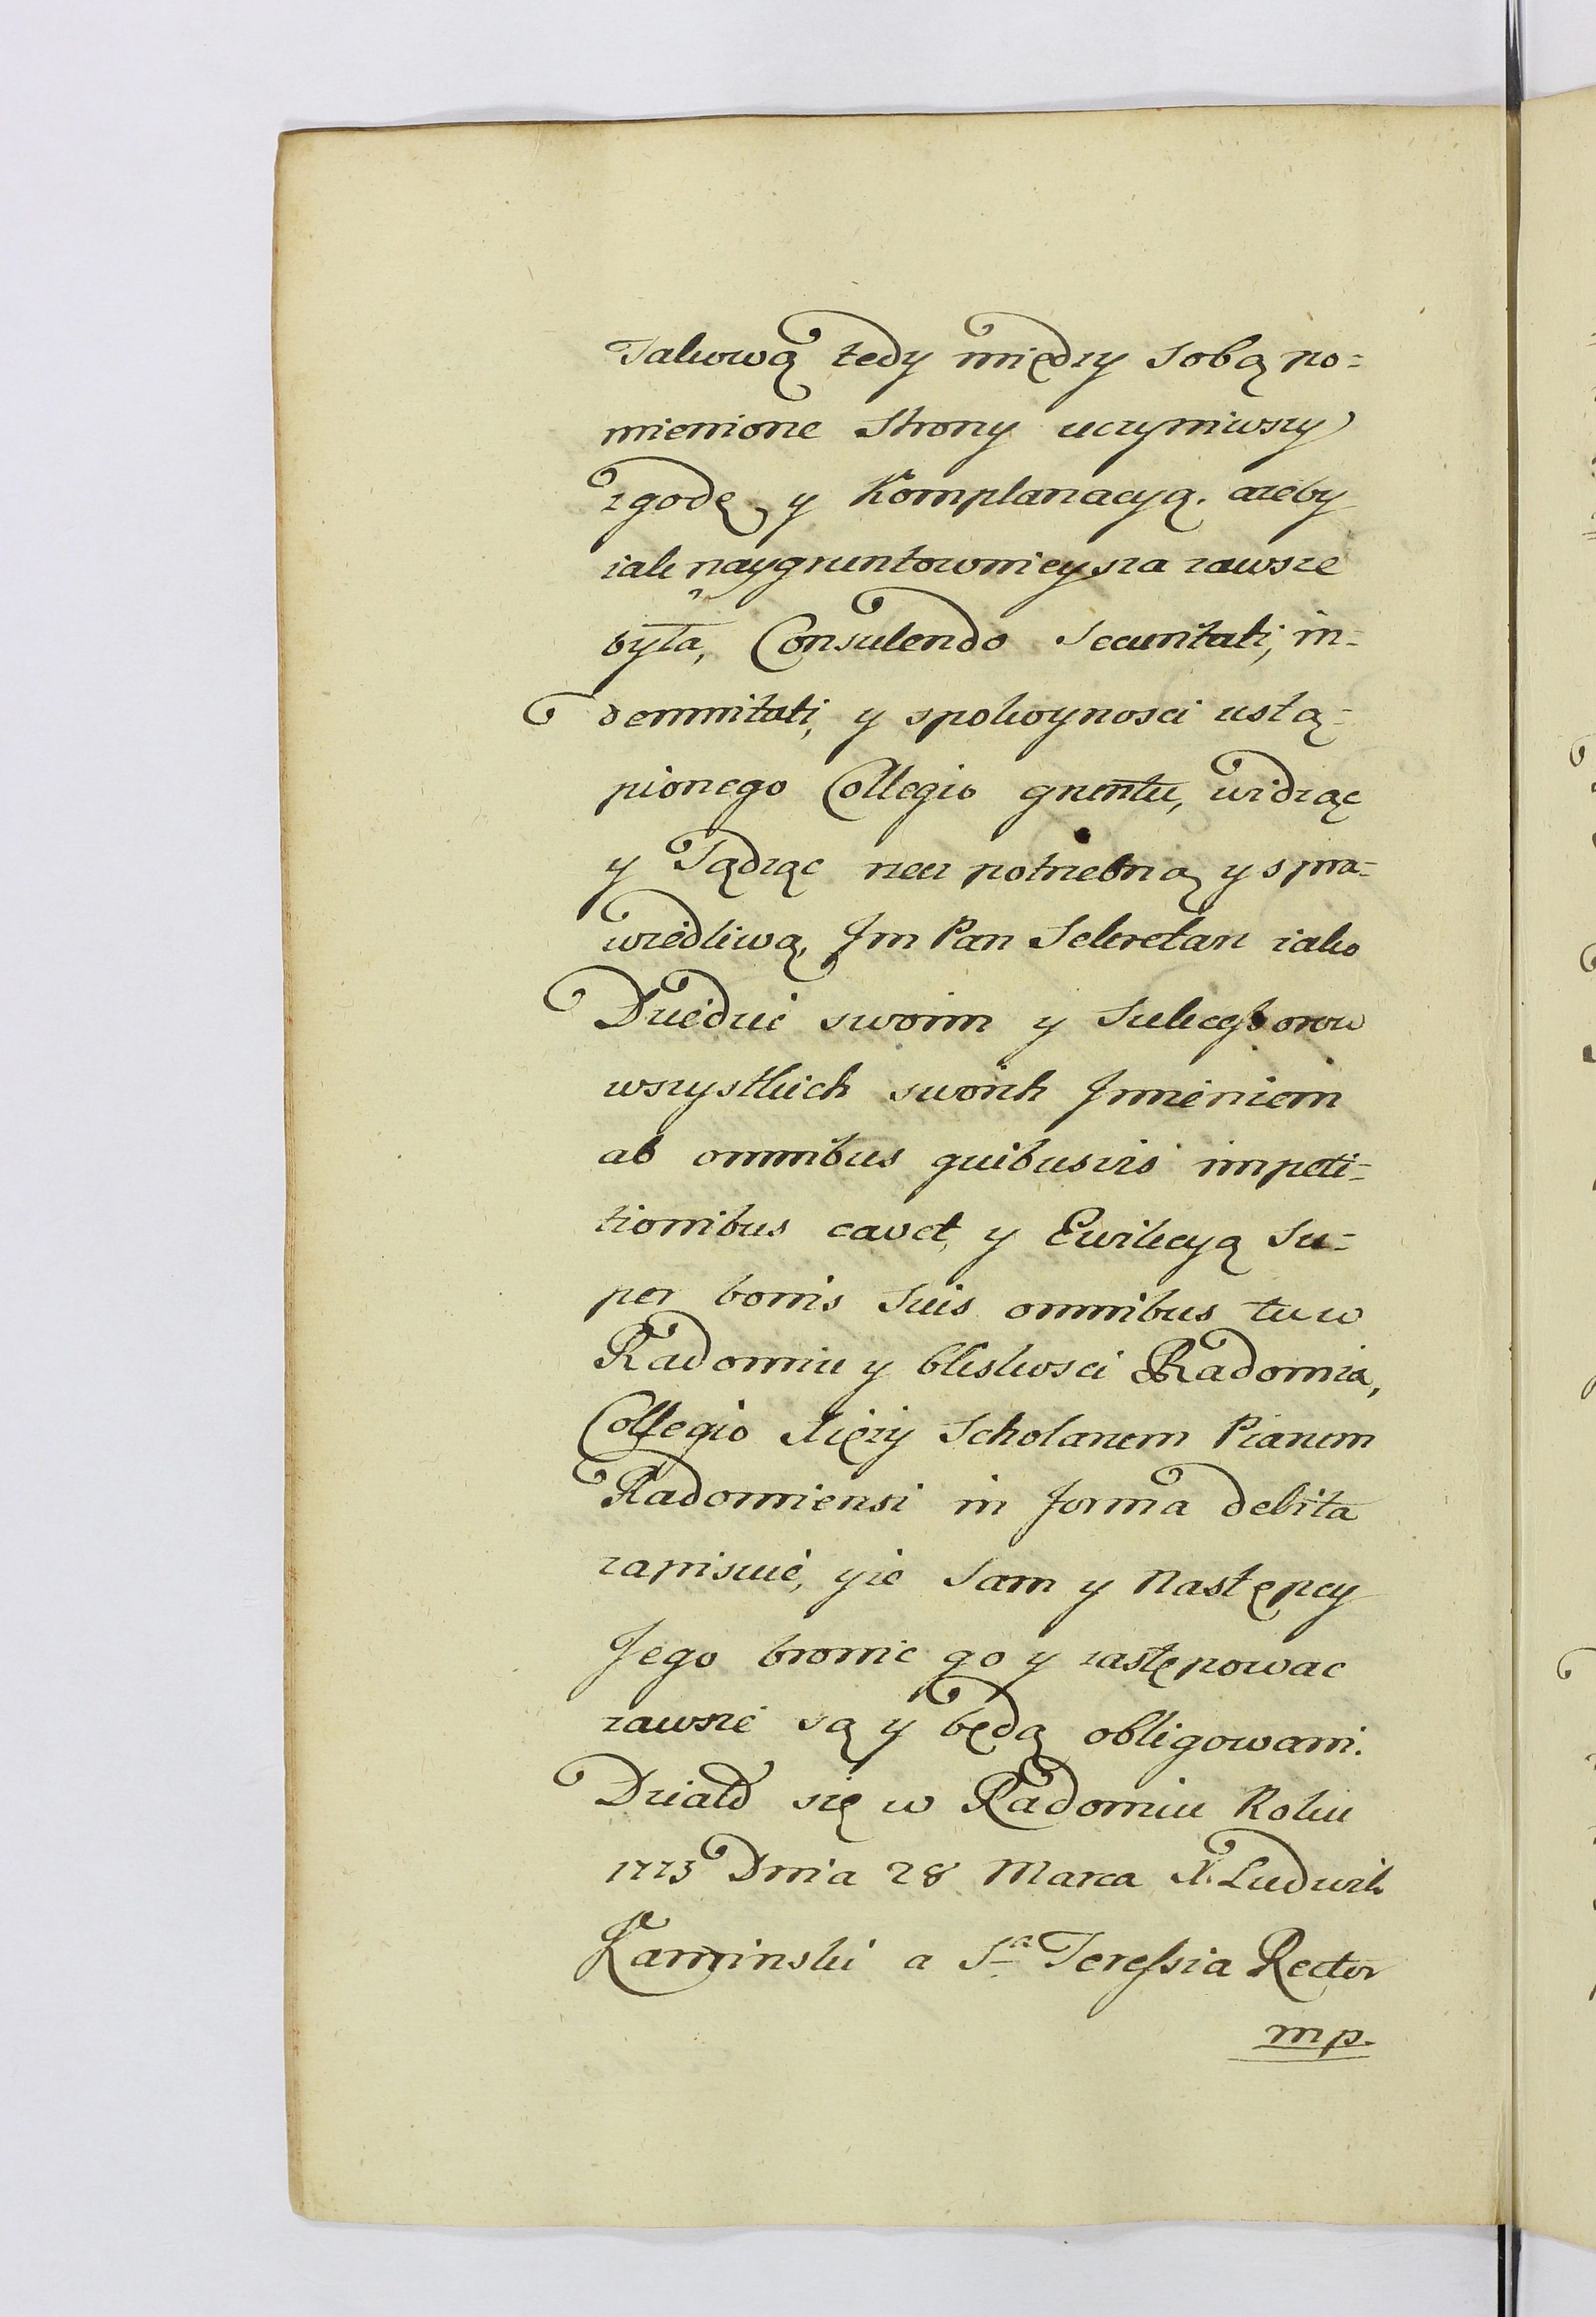 Takową tedy między sobą po=
mienione Strony uczyniwszy
zgodę y Komplanacyą. ażeby
iak naygruntownieysza zawsze
była, Consulendo Securitati, in=
demnitati, y spokoynosci ustą=
pionego Collegio gruntu, widząc
y Sądząc rzecz potrzebną y spra=
wiedliwą, Jm Pan Sekretarz iako
Dziedzic swoim y Sukcessorow
wszystkich swoich Jmieniem
ab omnibus quibusvis impeti=
tionibus cavet, y Ewikcyą Su=
per bonis Suis omnibus tu w
Radomiu y bliskosci Radomia,
Collegio Xięży Scholarum Piarum
Radomiensi in forma debita
zapisuie, yże Sam y Następcy
Jego bronic go y zastępowac
zawsze są y będą obligowani.
Działo się w Radomiu Roku
1773 Dnia 28 Marca X. Ludwik
Kaminski a Sta Teressia Rector
mp.